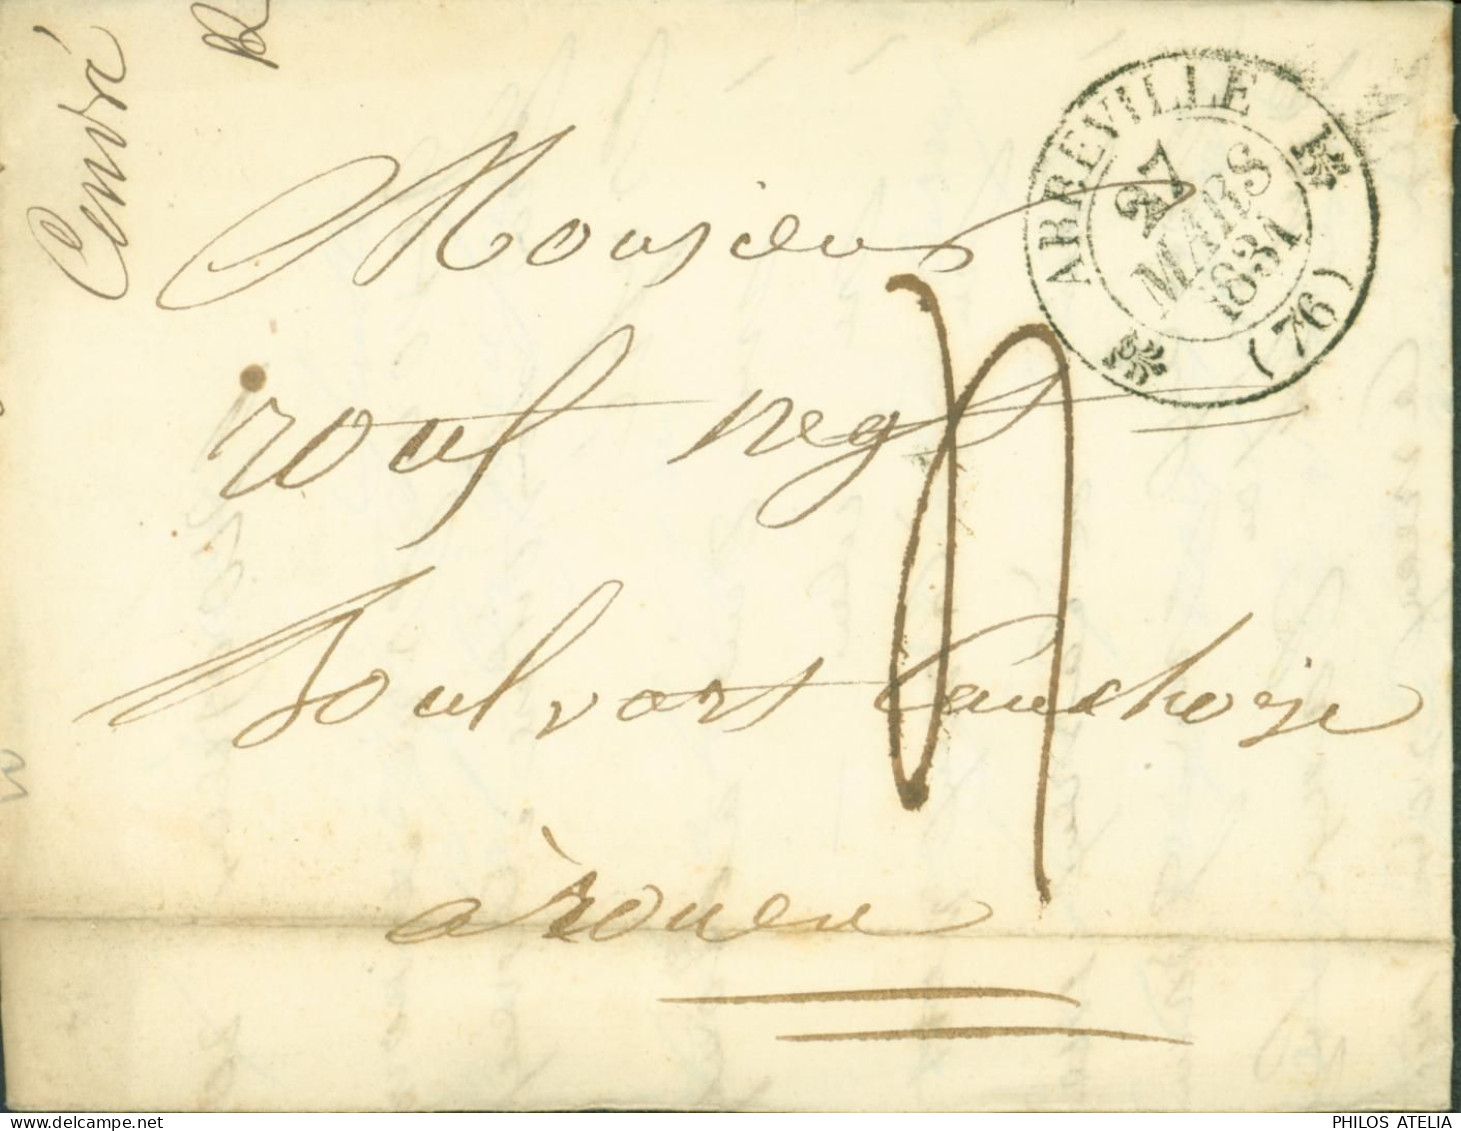 Cendré
ABBEVILLE
27
MARS
1831
(76)
Monsieur
rouf negt
Boulvart Cauchoise
à rouen
PHILOS ATELIA